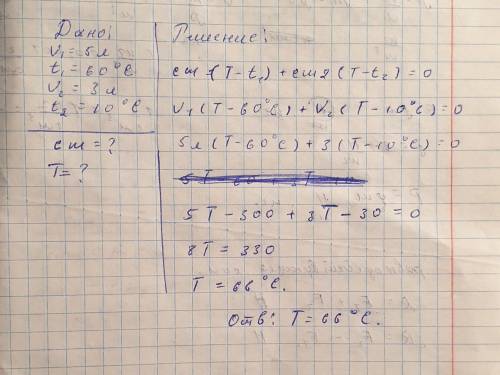 Дано:
V₁ = 5 л
t₁ = 60°C
V₂ = 3 л
t₂ = 10°C
cm = ?
T = ?
Решение:
cm₁(T-t₁) + cm2(T-t₂) = 0
V₁(T-60°C) + V₂(T-10°C) = 0
5л(T-60°C) + 3(T-10°C) = 0
5T - 300 + 3T - 30 = 0
8T = 330
T = 66°C.
Отв: T = 66°C.